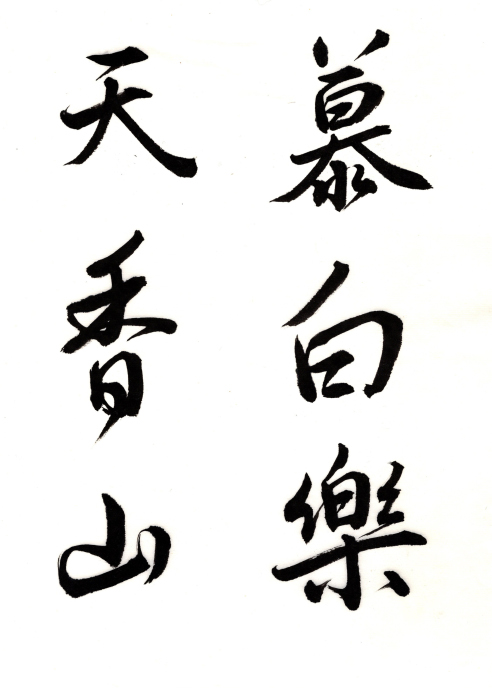 慕白樂
天香山